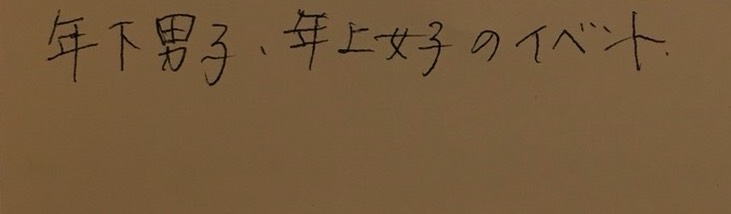 年下男子、年上女子のイベント.